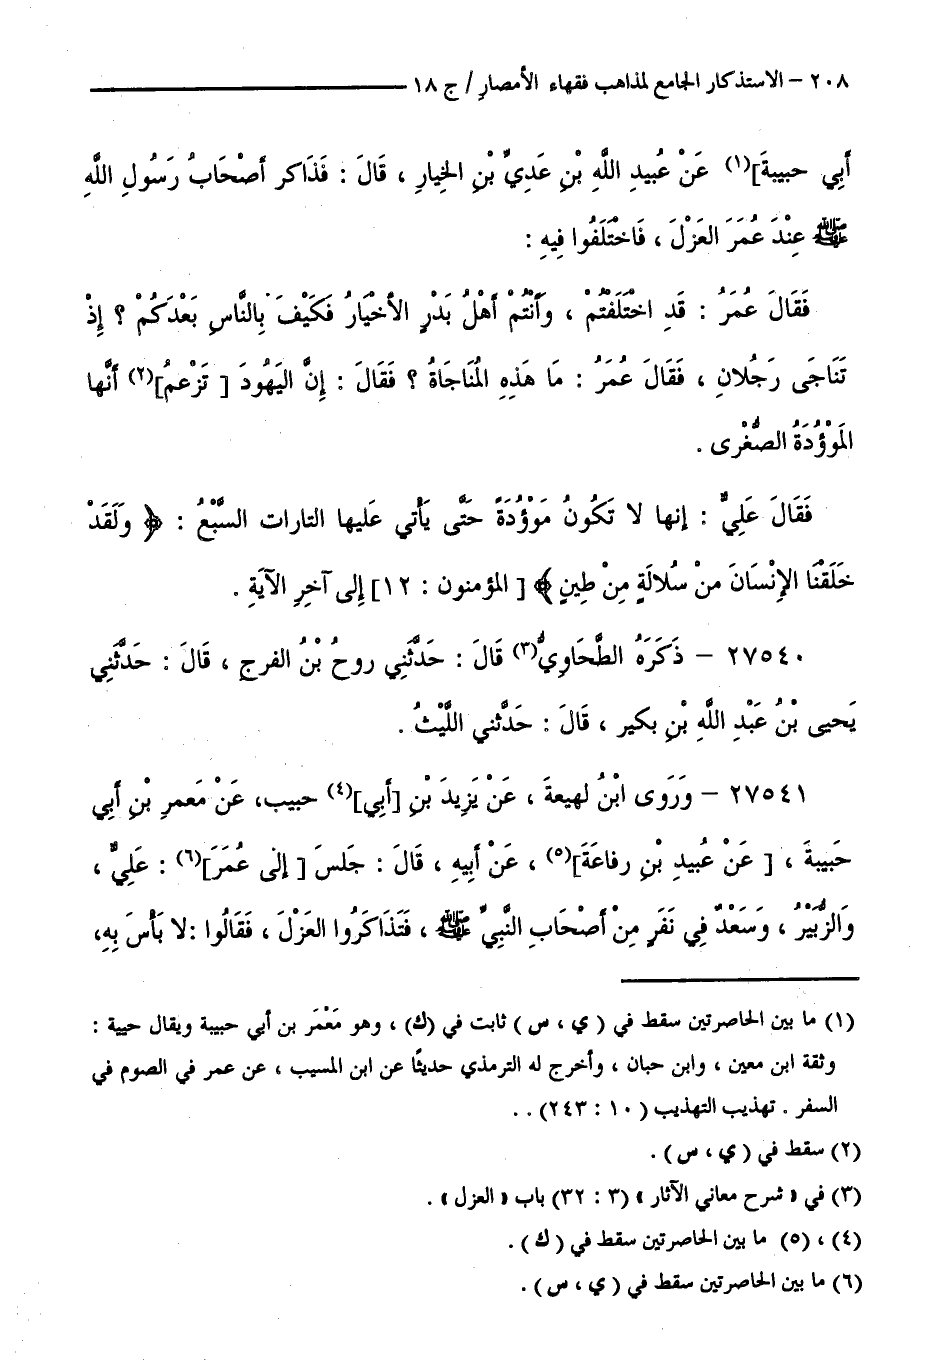 ٢٠٨ – الاستذكار الجامع لمذاهب فقهاء الأمصارِ / ج ١٨
أَبِي حبيبةَ](١) عَنْ عُبيدِ اللَّهِ بْنِ عَدِيِّ بْنِ الخِيارِ ، قَالَ : فَذَاكر أصْحَابُ رَسُولِ اللَّهِ
ﷺ عِنْدَ عُمَرَ العَزْلَ ، فَاخْتَلَفُوا فِيهِ :
فَقَالَ عُمَرُ : قَدِ اخْتَلَفْتُمْ ، وَأَنْتُمْ أهْلُ بَدْرٍ الأخْيَارُ فَكَيْفَ بِالنَّاسِ بَعْدَكُمْ ؟ إِذْ
تَنَاجَى رَجُلانِ ، فَقَالَ عُمَرُ : مَا هَذِهِ الْمُنَاجَاةُ ؟ فَقَالَ : إِنَّ اليَهُودَ [ تَزْعمُ](٢) أنَّها
الْمَوْؤُدَةُ الصُّغْرى .
فَقَالَ عَلِيٌّ : إنها لا تَكُونُ مَوْؤُدَةً حَتَّى يَأْتي عَليها التارات السَّبْعُ : ﴿ وَلَقَدْ
خَلَقْنَا الإِنْسَانَ مَنْ سُلالَةٍ مِنْ طِينٍ ﴾ [ المؤمنون : ١٢] إِلى آخِرِ الآيَةِ .
٢٧٥٤٠ – ذَكَرَهُ الطَّحَاوِيُّ(٣) قَالَ : حَدَّثَنِي روحُ بْنُ الفرجِ ، قَالَ : حَدَّثَنِي
يَحيى بْنُ عَبْدِ اللَّهِ بْنِ بكير ، قَالَ : حَدَّثَني اللَّيْثُ .
٢٧٥٤١ – وَرَوَى ابْنُ لهيعةَ ، عَنْ يَزِيدَ بْنِ [أبِي](٤) حبيب، عَنْ مَعمرِ بْنِ أبي
حَبيبةَ ، [ عَنْ عُبيدِ بْنِ رفاعَةَ](٥) ، عَنْ أبِيهِ ، قَالَ : جَلسَ [ إلى عُمَرَ](٦) : عَليٌّ ،
وَالزُّبَيْرُ ، وَسَعْدٌ فِي نَفَرٍ مِنْ أصْحَابِ النَّبيِّ ﷺ ، فَتَذَاكَرُوا العَزْلَ ، فَقَالُوا :لا بَأْسَ بِهِ،
(١) ما بين الحاصرتين سقط في ( ي ، س ) ثابت في (ك) ، وهو مَعْمَر بن أبي حبيبة ويقال حيية :
وثقة ابن معين ، وابن حبان ، وأخرج له الترمذي حديثًا عن ابن المسيب ، عن عمر في الصوم في
السفر . تهذيب التهذيب ( ١٠ : ٢٤٣) . .
(٢) سقط في ( ي ، س ) .
(٣) في « شرح معاني الآثار » (٣ : ٣٢) باب « العزل » .
(٤) ، (٥) ما بين الحاصرتين سقط في ( ك ) .
(٦) ما بين الحاصرتين سقط في ( ي ، س ) .